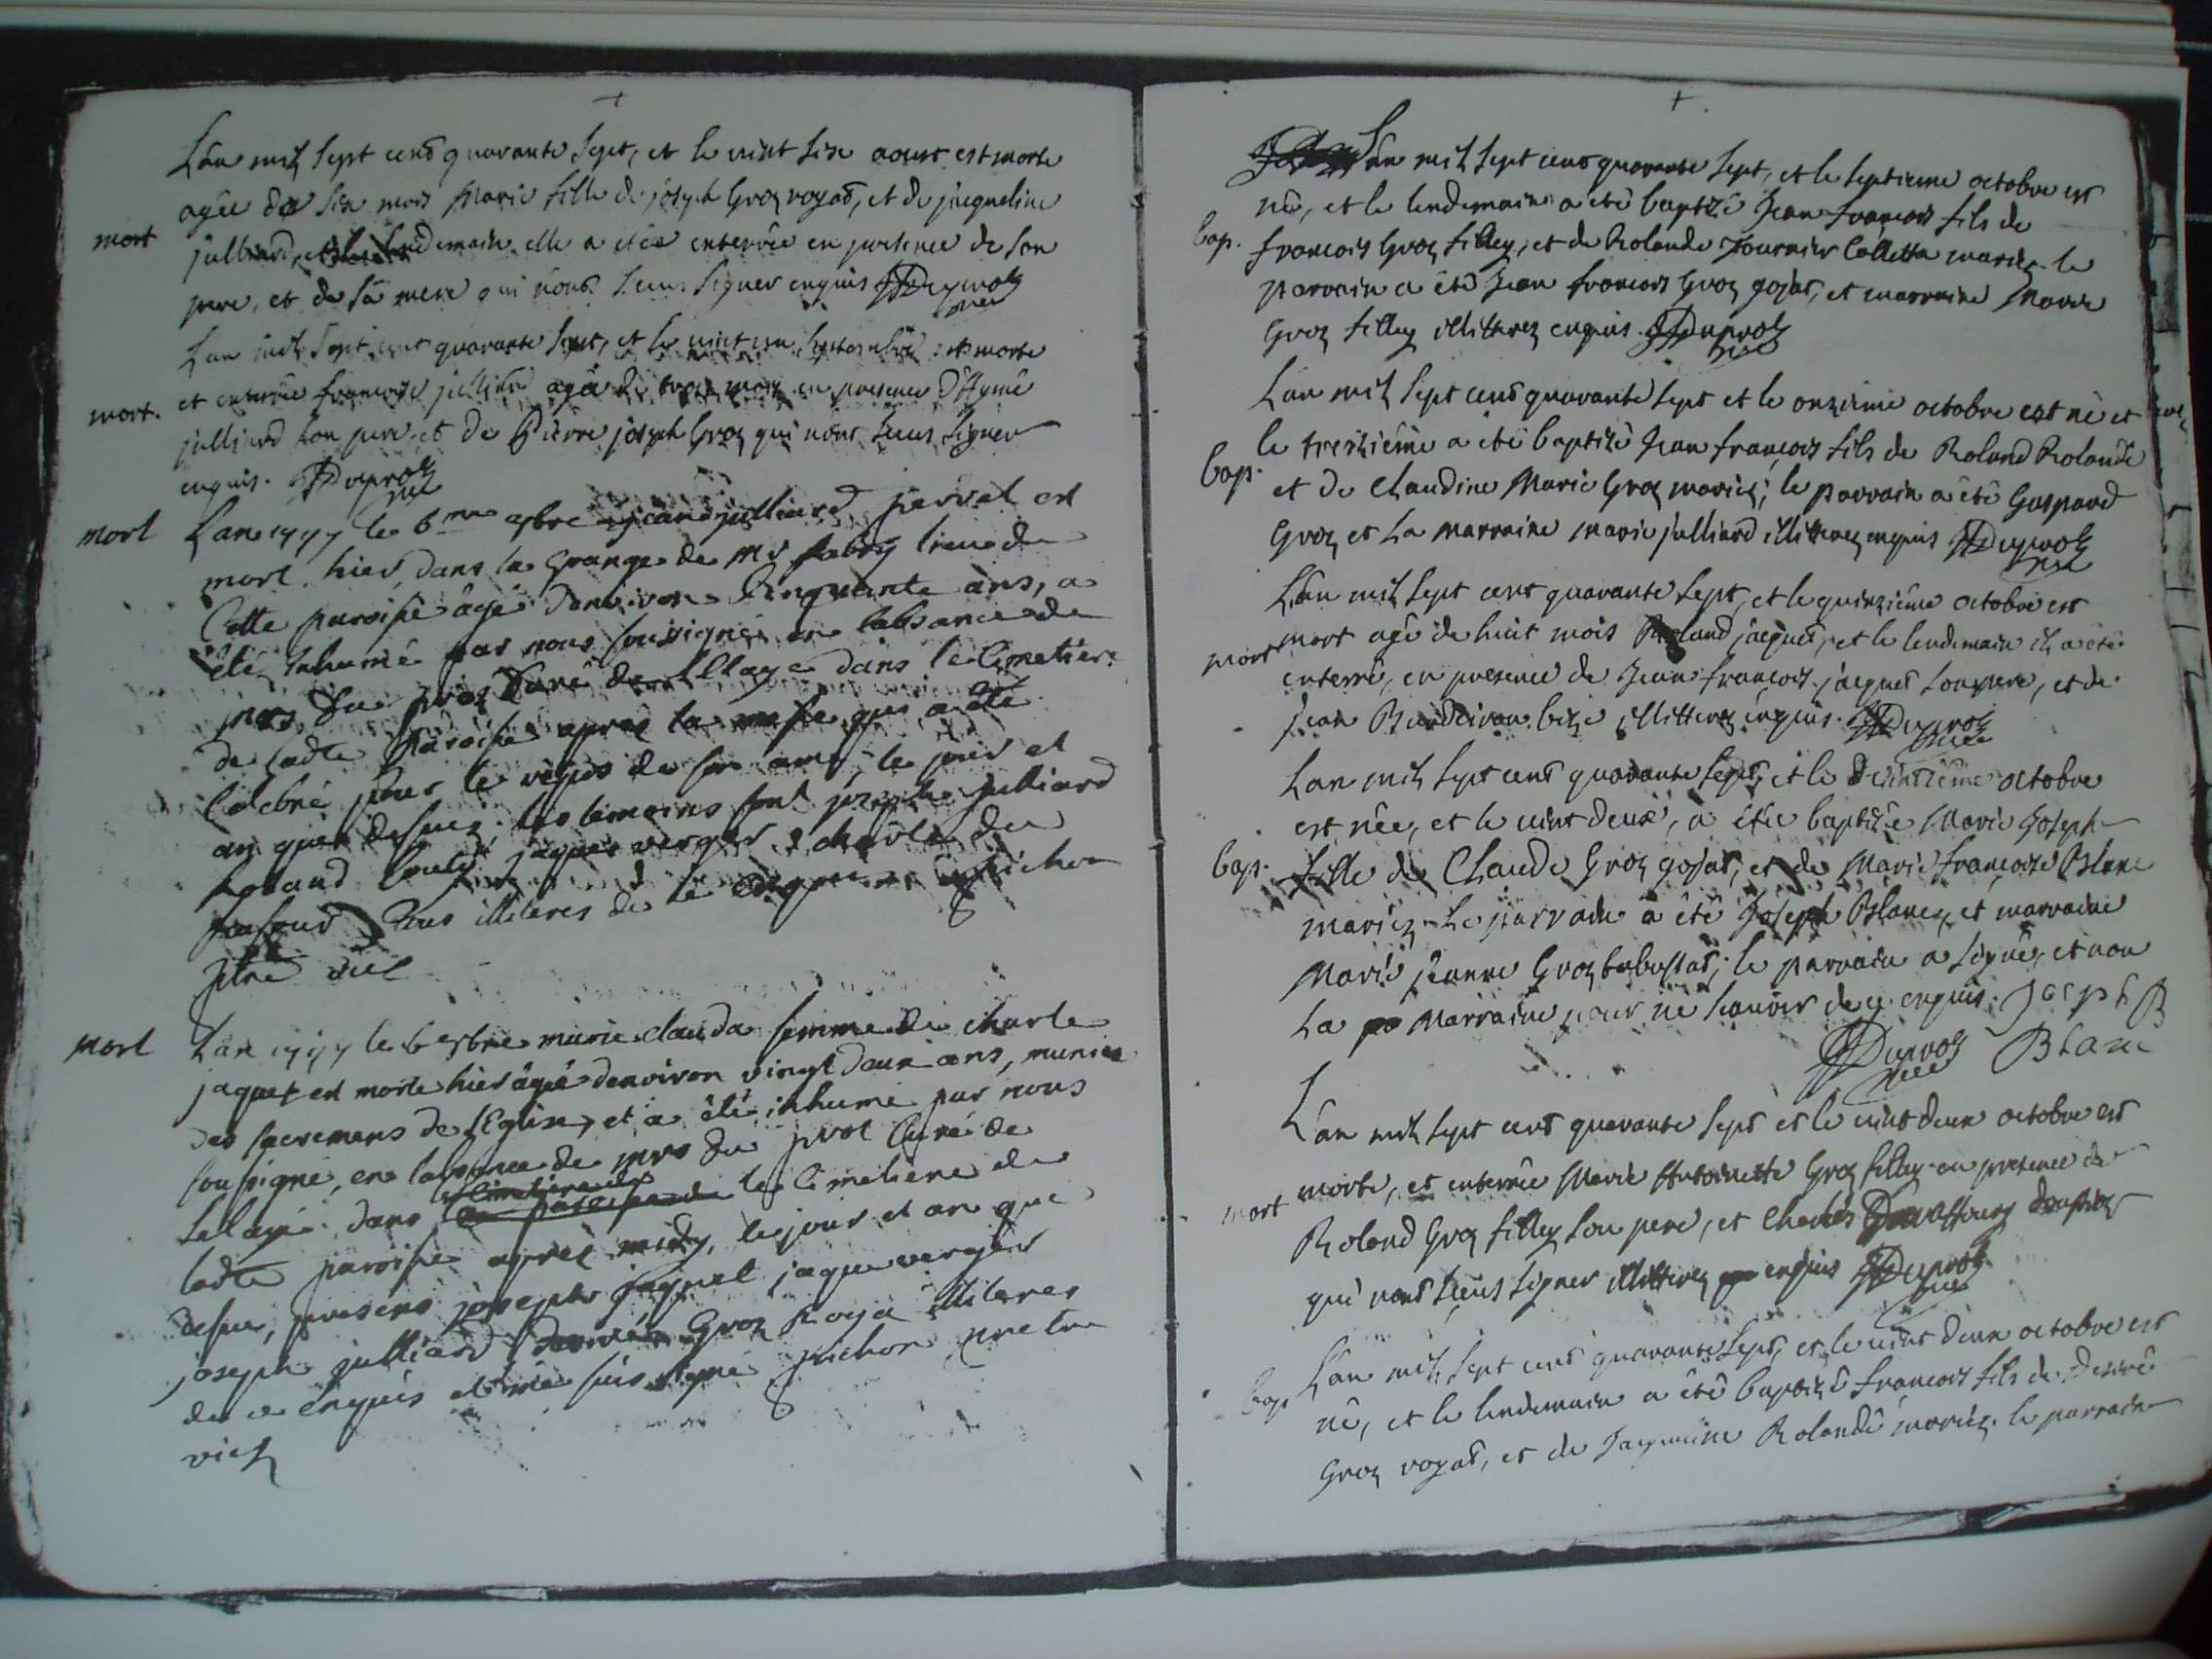 L'an mil sept cens quarante sept, et le vint six aoust est morte
agée de six mois Marie fille de joseph Groz royat, et de jacqueline
mort julliard, lendemain elle a etée enterrée en presence de son
pere, et de sa mere qui n'ont sceus signer enquis Duproz
curé
L'an mil sept cent quarante sept, et le vint un septembre est morte
mort. et enterrée françoise julliard agée de trois mois en presence d'Aymé
julliard son pere, et de Pierre joseph Groz qui n'ont sceus signer
enquis. Duproz
curé
mort Lan 1747 le 6me 7bre julliard perrat est
mort hier, dans la grange de Mr fabry lieu de
Cette paroisse âgé denviron Cinquante ans, a
été inhumé par nous soussigné en labsance de
mrs Du proz Curé de Lelaye dans le Cimetiere
de ladte paroisse apres la messe qui a été
Celebré pour le repos de son ame, le jour et
an que dessus; les temoins sont joseph julliard
jaques verger charle du
tous illiteres de ce Enquis pichon
ptre vic
mort Lan 1747 le 6 7bre marie clauda femme de charle
jaquet est morte hier âgée denviron vingt deux ans, munie
des sacremens de lEglise, et a été inhumé par nous
soussigné, en labsence de mrs du proz Curé de
Lelaye dans le Cimetiere de
ladte paroisse apres midy, le jour et an que
dessus, presens joseph jaquet jaque verger
joseph julliard Groz Roya illiteres
de ce Enquis et me suis signé pichon pretre
vic

L'an mil sept cens quarante sept, et le septieme octobre est
né, et le lendemain a été baptizé Jean françois fils de
bap. françois Groz filley, et de Rolande fournier Colletta mariez. le
parrain a été Jean françois Groz gojat, et marraine Marie
Groz filley illitterez enquis. Duproz
curé
L'an mil sept cens quarante sept et le onzieme octobre est né et
le treizième a été baptizé Jean françois fils de Roland Rolandé
bap. et de Claudine Marie Groz mariez; le parrain a été Gaspard
Groz et la marraine marie julliard illitterez enquis Duproz
curé
L'an mil sept cens quarante sept, et le quinzième octobre est
mort mort agé de huit mois Roland jacquet, et le lendemain il a été
enterré, en presence de Jean françois jacquet son pere, et de
jean illitterez enquis. Duproz
curé
L'an mil sept cens quarante sept, et le octobre
est née, et le vint deux, a étée baptizée Marie Joseph
bap. fille de Claude Groz gojat, et de Marie françoise Blanc
mariez. Le parrain a été Joseph Blanc, et marraine
Marie jeanne Groz; le parrain a signé, et non
la marraine pour ne scavoir de ce enquis. joseph B
Duproz Blanc
curé
L'an mil sept cens quarante sept et le vint deux octobre est
mort morte, et enterrée Marie Antoinette Groz filley en presence de
Roland Groz filley son pere, et Charles
qui n'ont sceus signer illitterez enquis Duproz
curé
L'an mil sept cens quarante sept, et le vint deux octobre est
bap né, et le lendemain a été baptizé françois fils de Desiré
Groz royat, et de Jacquemine Rolandé mariez. le parrain